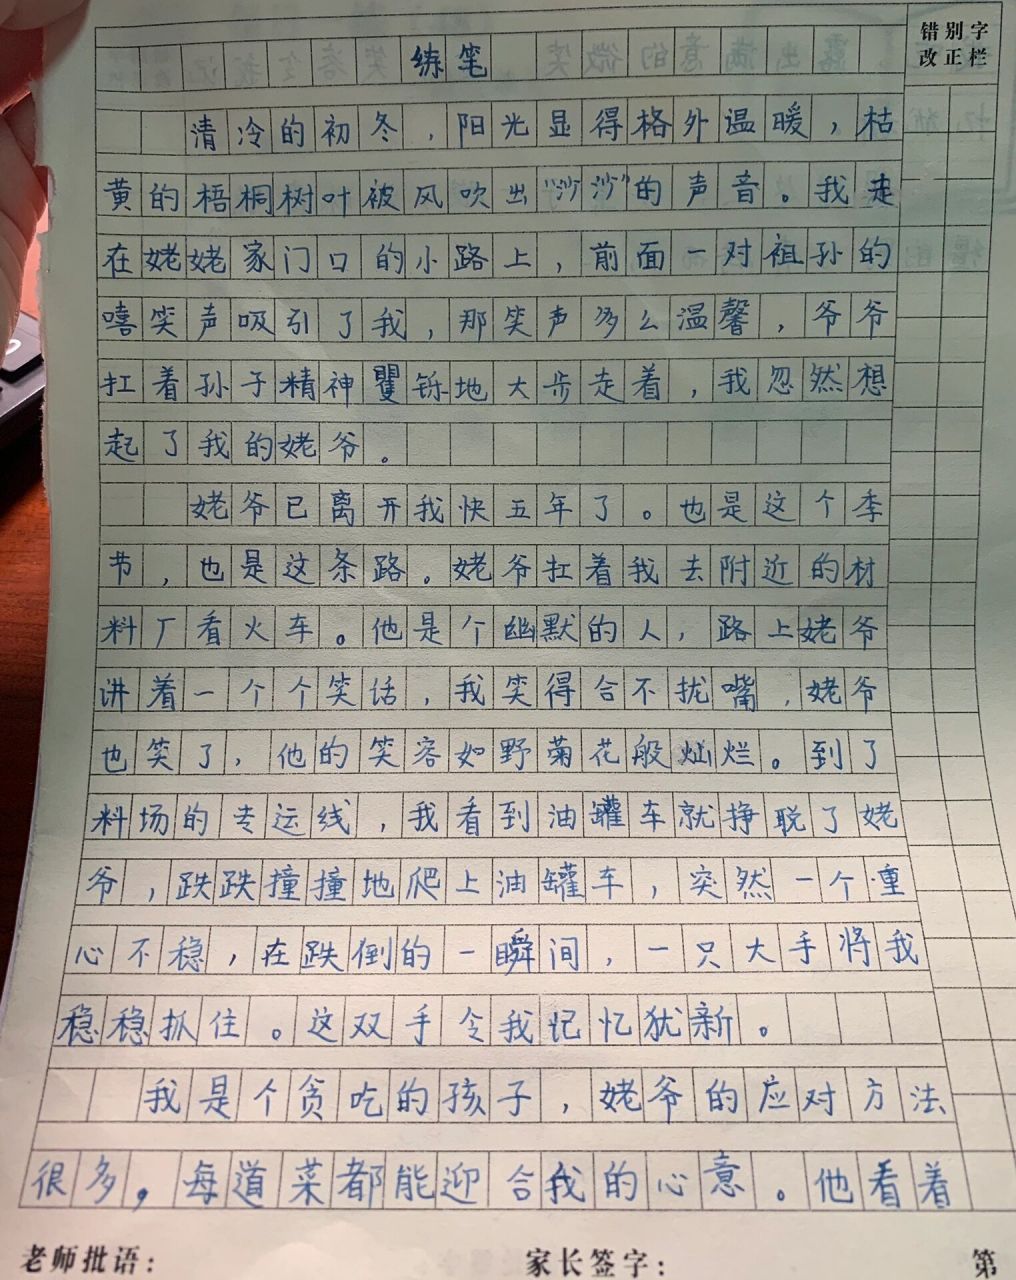 错别字
改正栏
练笔
清冷的初冬，阳光显得格外温暖，枯
黄的梧桐树叶被风吹出“沙沙”的声音。我走
在姥姥家门口的小路上，前面一对祖孙的
嘻笑声吸引了我，那笑声多么温馨，爷爷
扛着孙子精神矍铄地大步走着，我忽然想
起了我的姥爷。
姥爷已离开我快五年了。也是这个季
节，也是这条路。姥爷扛着我去附近的材
料厂看火车。他是个幽默的人，路上姥爷
讲着一个个笑话，我笑得合不拢嘴，姥爷
也笑了，他的笑容如野菊花般灿烂。到了
料场的专运线，我看到油罐车就挣脱了姥
爷，跌跌撞撞地爬上油罐车，突然一个重
心不稳，在跌倒的一瞬间，一只大手将我
稳稳抓住。这双手令我记忆犹新。
我是个贪吃的孩子，姥爷的应对方法
很多，每道菜都能迎合我的心意。他看着
老师批语：
家长签字：
第